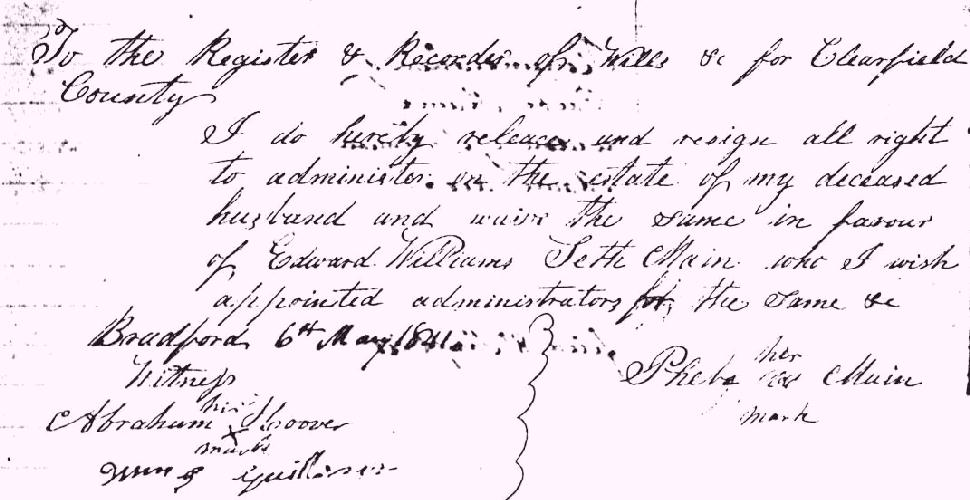 To the Register & Recorder of Wills &c for Clearfield
County
I do hereby release and resign all right
to administer on the estate of my deceased
husband and waive the same in favour
of Edward Williams Seth Main who I wish
appointed administrators for the same &c
Bradford 6th May
Witness
Abraham his x mark Hoover
Pheby her x mark Main